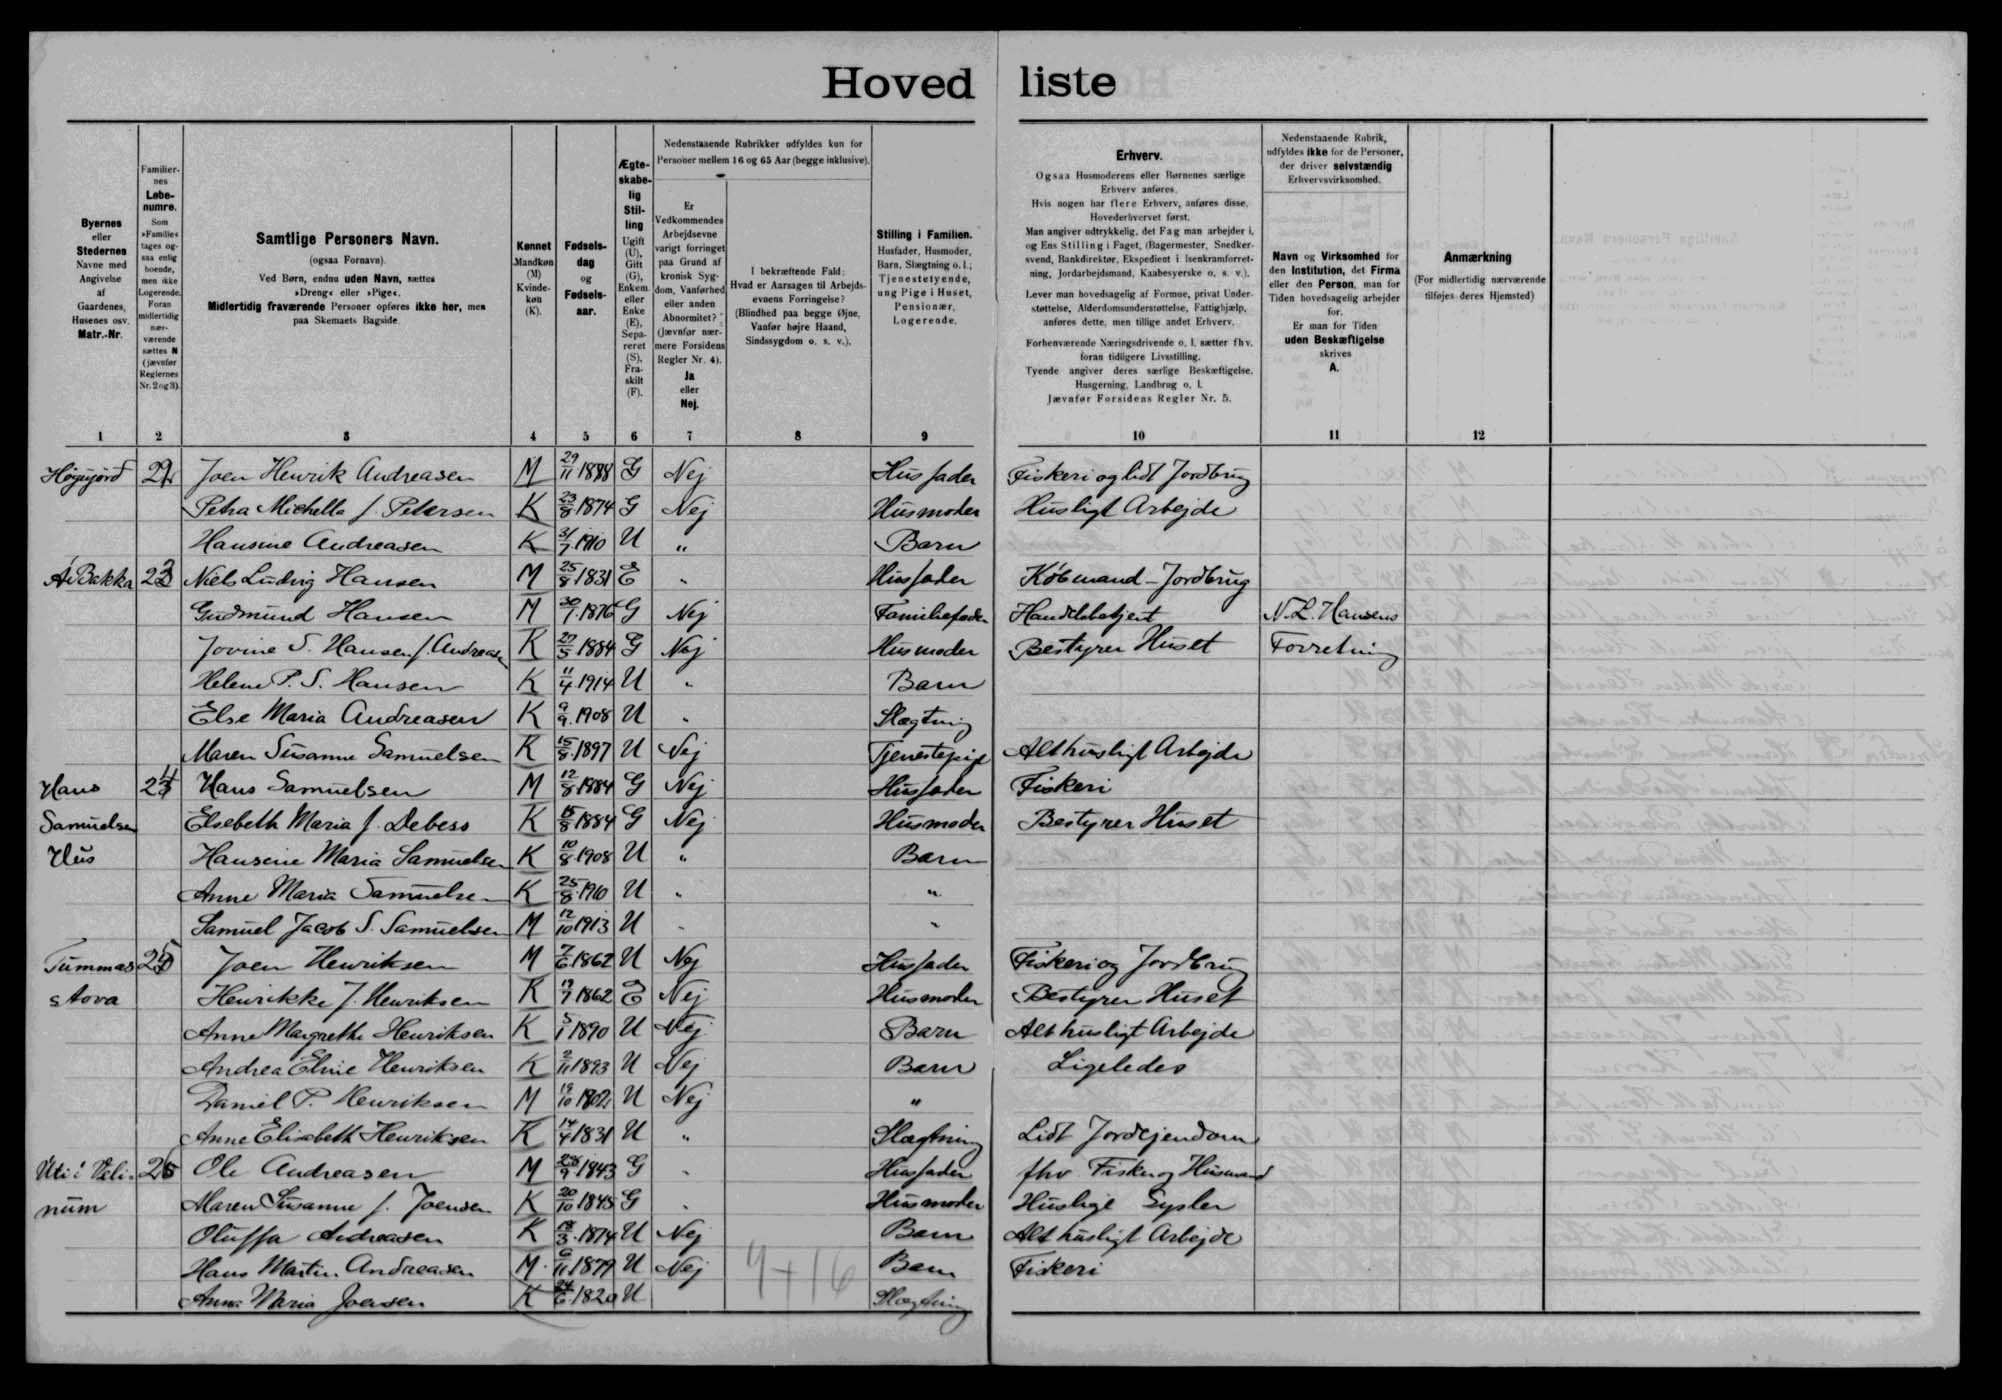 Hoved liste
Byernes
eller
Stedernes
Navne med
Angivelse
af
Gaardenes,
Husenes osv.
Matr.-Nr.
Familier-
nes
Løbe-
numre.
Som
»Familie«
tages og-
saa enlig
boende,
men ikke
Logerende.
Foran
midlertidig
nær-
værende
sættes N
(jævnfør
Reglernes
Nr. 2 og 3).
Samtlige Personers Navn.
(ogsaa Fornavn).
Ved Børn, endnu uden Navn, sættes
»Dreng« eller »Pige«.
Midlertidig fraværende Personer opføres ikke her, men
paa Skemaets Bagside.
Kønnet
Mandkøn
(M)
Kvinde-
køn
(K).
Fødsels-
dag
og
Fødsels-
aar.
Ægte-
skabe-
lig
Stil-
ling
Ugift
(U),
Gift
(G),
Enkem.
eller
Enke
(E),
Sepa-
reret
(S),
Fra-
skilt
(F).
Nedenstaaende Rubrikker udfyldes kun for
Personer mellem 16 og 65 Aar (begge inklusive).
Er
Vedkommendes
Arbejdsevne
varigt forringet
paa Grund af
kronisk Syg-
dom, Vanførhed
eller anden
Abnormitet?
(Jævnfør nær-
mere Forsidens
Regler Nr. 4).
Ja
eller
Nej.
I bekræftende Fald:
Hvad er Aarsagen til Arbejds-
evnens Forringelse?
(Blindhed paa begge Øjne,
Vanfør højre Haand,
Sindssygdom o. s. v.).
Stilling i Familien.
Husfader, Husmoder,
Barn, Slægtning o. l.;
Tjenestetyende,
ung Pige i Huset,
Pensionær,
Logerende.
Erhverv.
Ogsaa Husmoderens eller Børnenes særlige
Erhverv anføres.
Hvis nogen har flere Erhverv, anføres disse,
Hovederhvervet først.
Man angiver udtrykkelig, det Fag man arbejder i,
og Ens Stilling i Faget, (Bagermester, Snedker-
svend, Bankdirektør, Ekspedient i Isenkramforret-
ning, Jordarbejdsmand, Kaabesyerske o. s. v.).
Lever man hovedsagelig af Formue, privat Under-
støttelse, Alderdomsunderstøttelse, Fattighjælp,
anføres dette, men tillige andet Erhverv.
Forhenværende Næringsdrivende o. l. sætter fhv.
foran tidligere Livsstilling.
Tyende angiver deres særlige Beskæftigelse,
Husgerning, Landbrug o. l.
Jævnfør Forsidens Regler Nr. 5.
Nedenstaaende Rubrik,
udfyldes ikke for de Personer,
der driver selvstændig
Erhvervsvirksomhed.
Navn og Virksomhed for
den Institution, det Firma
eller den Person, man for
Tiden hovedsagelig arbejder
for.
Er man for Tiden
uden Beskæftigelse
skrives
A.
Anmærkning
(For midlertidig nærværende
tilføjes deres Hjemsted)
1 2 3 4 5 6 7 8 9 10 11 12
Høgujørð 22 Joen Henrik Andreasen M 29/11 1878 G Nej Husfader Fiskeri og lidt Jordbrug
Petra Michella f. Petersen K 23/8 1874 G Nej Husmoder Husligt Arbejde
Hansine Andreasen K 31/7 1910 U " Barn
Á Bakka 23 Niels Ludvig Hansen M 25/8 1831 E " Husfader Købmand - Jordbrug
Gudmund Hansen M 30/1 1876 G Nej Familiefader Handelsbetjent N. L. Hansens
Jovine S. Hansen f. Andreasen K 20/5 1884 G Nej Husmoder Bestyrer Huset Forretning
Helene P. S. Hansen K 11/4 1914 U " Barn
Else Maria Andreasen K 9/9 1908 U " Slægtning
Maren Susanne Samuelsen K 15/8 1897 U Nej Tjenestepige Alt husligt Arbejde
Hans 24 Hans Samuelsen M 12/8 1884 G Nej Husfader Fiskeri
Samuelsen Elsebeth Maria f. Debess K 15/8 1884 G Nej Husmoder Bestyrer Huset
Hus Hansine Maria Samuelsen K 10/8 1908 U " Barn
Anne Maria Samuelsen K 25/8 1910 U " "
Samuel Jacob S. Samuelsen M 12/10 1913 U " "
Tummas 25 Joen Henriksen M 7/6 1862 U Nej Husfader Fiskeri og Jordbrug
stova Henrikke J. Henriksen K 19/7 1862 E Nej Husmoder Bestyrer Huset
Anne Margrethe Henriksen K 5/1 1890 U Nej Barn Alt husligt Arbejde
Andrea Elsie Henriksen K 2/11 1893 U Nej Barn Ligeledes
Daniel P. Henriksen M 19/10 U Nej "
Anne Elisabeth Henriksen K 14/4 1831 U " Slægtning Lidt Jordejendom
Úti í Veli- 26 Ole Andreasen M 9 1843 G " Husfader fhv. Fisker og Husmand
num Maren Susanne f. Joensen K 20/10 1845 G " Husmoder Huslige Sysler
Oluffa Andreasen K 18/3 1874 U Nej Barn Alt husligt Arbejde
Hans Martin Andreasen M 6/11 1879 U Nej Barn Fiskeri
Anna Maria Joensen K 24/6 1820 U Slægtning
9+16